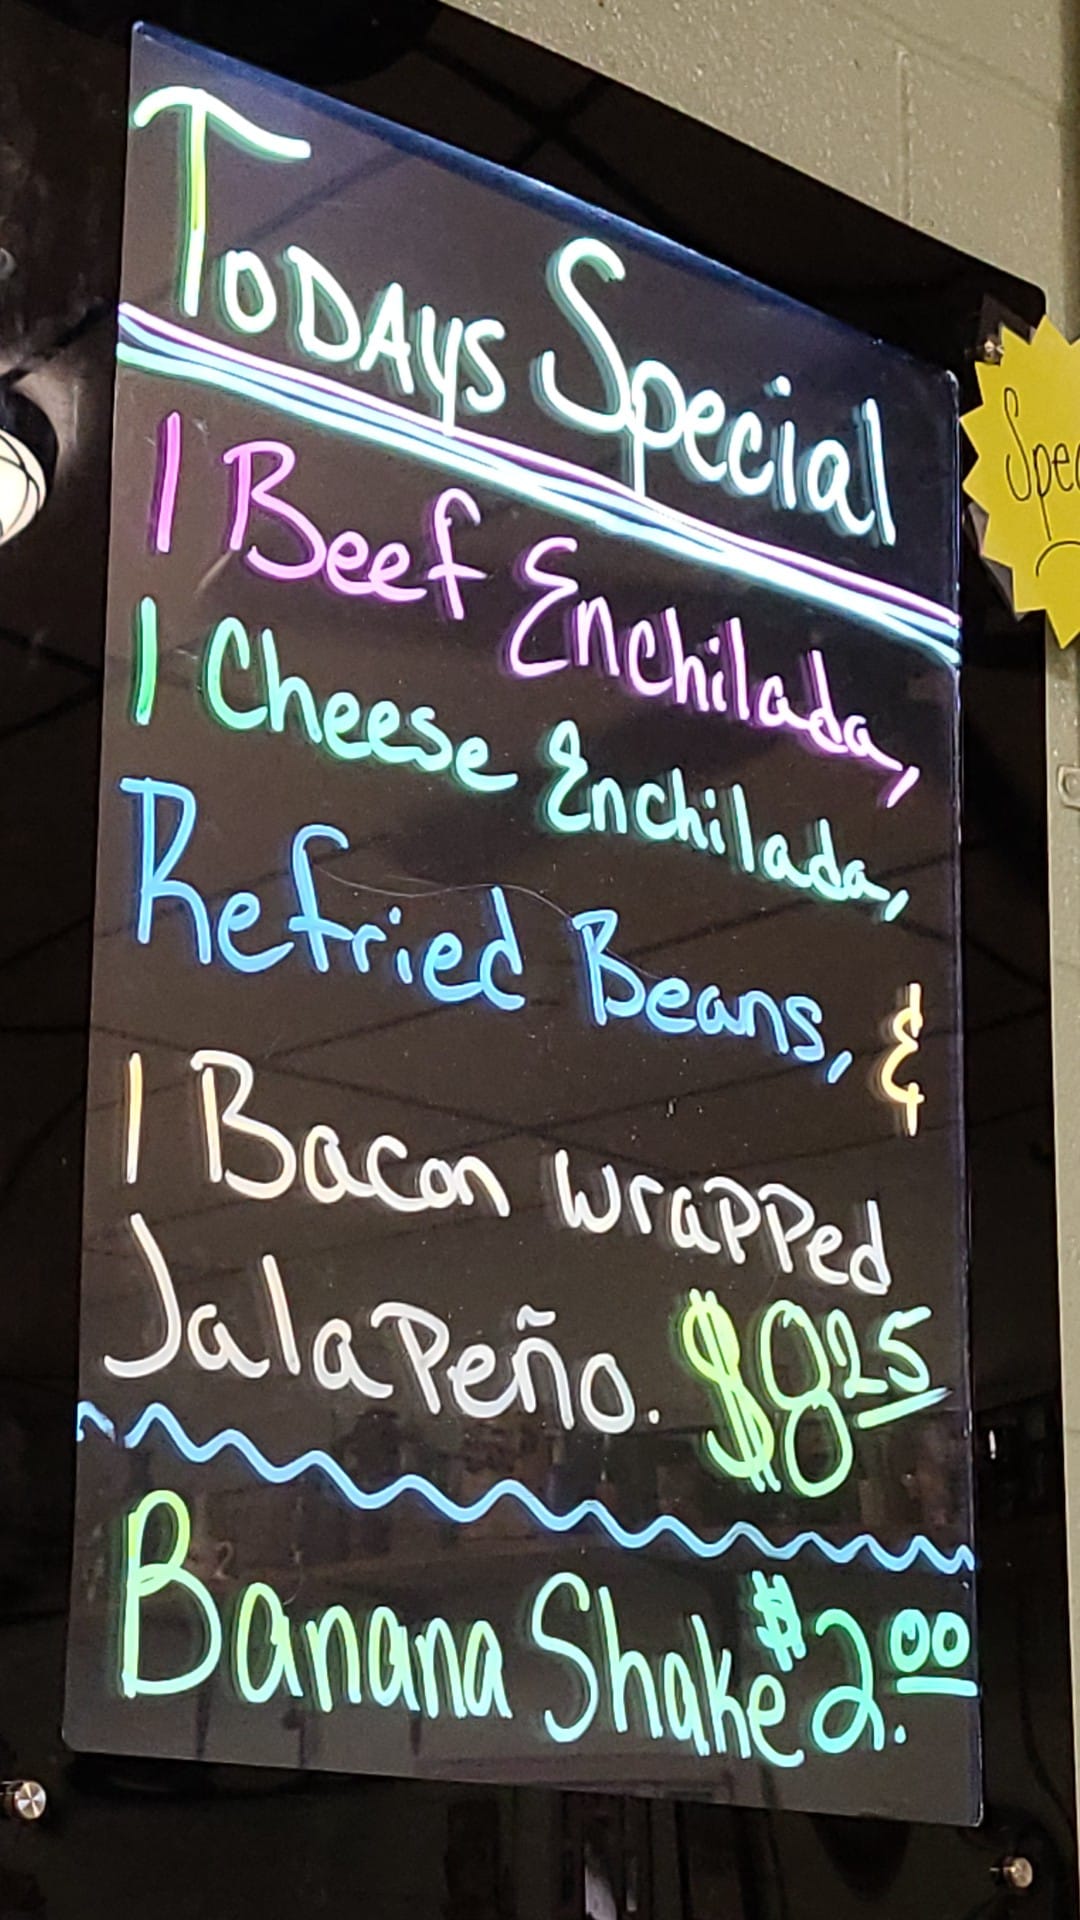 Todays Special
1 Beef Enchilada,
1 Cheese Enchilada,
Refried Beans, &
1 Bacon wrapped
Jalapeño. $8.25
Banana Shake $2.00